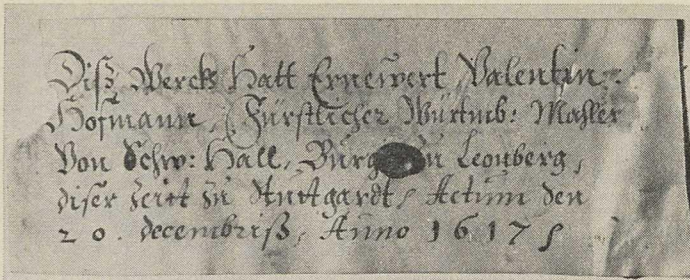 Diß Werck Hatt Ernewert Valentin
Hofmann, Fürstlicher Würtmb: Mahler
Von Schw: Hall, Burg Zu Leonberg,
diser Zeitt Zu Stuttgardt, Actum den
20. decembriß, Anno 1617